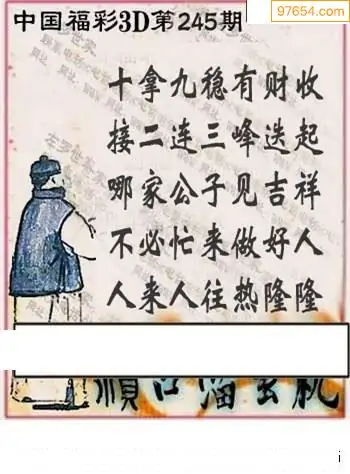 97654.com
中国福彩3D第245期
十拿九稳有财收
接二连三峰迭起
哪家公子见吉祥
不必忙来做好人
人来人往热隆隆